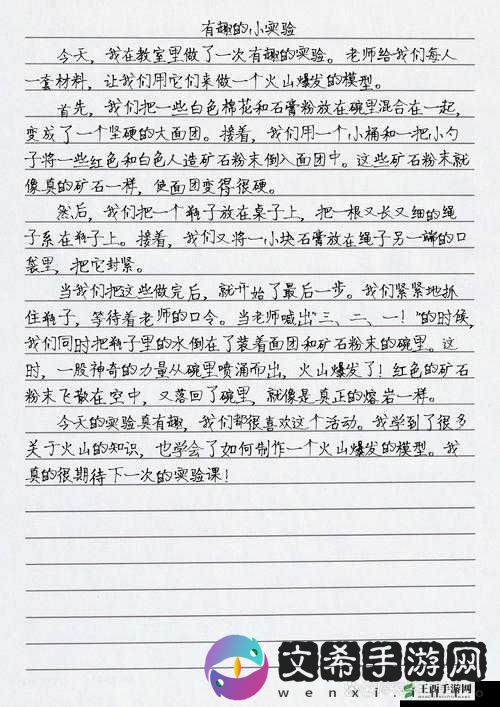 有趣的小实验
今天，我在教室里做了一次有趣的实验。老师给我们每人
一套材料，让我们用它们来做一个火山爆发的模型。
首先，我们把一些白色棉花和石膏粉放在碗里混合在一起，
变成了一个坚硬的大面团。接着，我们用一个小桶和一把小勺
子将一些红色和白色人造矿石粉末倒入面团中。这些矿石粉末就
像真的矿石一样，使面团变得很硬。
然后，我们把一个瓶子放在桌子上，把一根又长又细的绳
子系在瓶子上。接着，我们又将一小块石膏放在绳子另一端的口
袋里，把它封紧。
当我们把这些做完后，就开始了最后一步。我们紧紧地抓
住瓶子，等待着老师的口令。当老师喊出“三、二、一！”的时候，
我们同时把瓶子里的水倒在了装着面团和矿石粉末的碗里。这
时，一股神奇的力量从碗里喷涌而出，火山爆发了！红色的矿石
粉末飞散在空中，又落回了碗里，就像是真正的熔岩一样。
今天的实验真有趣，我们都很喜欢这个活动。我学到了很多
关于火山的知识，也学会了如何制作一个火山爆发的模型。我
真的很期待下一次的实验课！
文希手游网
wenxi.com
王西手游网